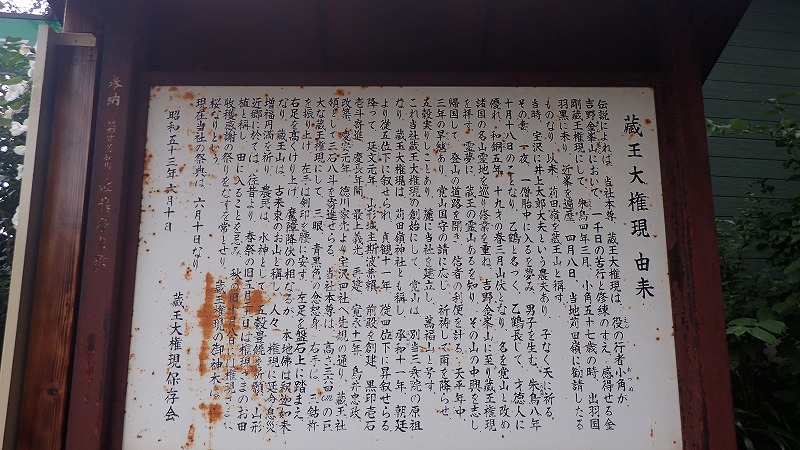 蔵王大権現 由来
伝説によれば、当社本尊、蔵王大権現は、役の行者小角が、
吉野金峯山において、一千日の苦行と修練のすえ、感得せる金
剛蔵王権現にして、朱鳥四年三月、小角五十七歳の時、出羽国
羽黒に来り、近峯を遍歴、四月八日、当地苅田嶺に勧請したる
ものなり、以来、苅田嶺を蔵王山と称す。
当時、宝沢に井上太郎大夫という農夫あり、子なく天に祈る。
その妻、一夜、一僧胎中に入るを夢み、男子を生む。朱鳥八年
十月十八日のことなり、乙鶴と名づく。乙鶴長じて、才徳人に
優れ、和銅五年、十九才の春三月山伏となり、名を覚山と改め
諸国の名山霊地を巡り修業を重ね、吉野金峯山に至り蔵王権現
を拝す。霊夢に、蔵王の霊山なるを知り、その山の中興を志し
帰国して、登山の道路を開き、信者の利便を計る。天平年中
三年の旱魃あり、覚山国守の請に応じ、祈祷して雨を降らせ
五穀実りしことあり、麓に当社を建立し、萬福山と号す。
これ当社蔵王大権現の創始にして、覚山は、別当三乗院の原祖
なり、蔵王大権現は、苅田嶺神社とも称し、承和十一年、朝廷
より従五位下に叙せられ、貞観十一年、従四位下に昇叙せらる
降って、延文元年、山形城主斯波兼頼、前殿を創建、黒印壱石
壱斗寄進、慶長年間、最上義光、再建、寛永十二年、鳥井忠政、
改築、慶安元年、徳川家光より宝沢四社へ先規の通り、蔵王社
領として三石八斗を寄進せらる。当社本尊は、高さ三六〇㎝の巨
大な蔵王権現にして、三眼、青黒色の忿怒身、右手は、三鈷杵
を振り上げ、左手は剣印を腰に安す、左足を盤石上に踏まえ
右足を高くけり上げ、魔障降伏の相なるが、本地佛は釈迦如来
なり、蔵王山は、古来東のお山と称し、人々、権現に延命息災
増福円満を祈り、農民は、水神として、五穀豊饒を祈願、山形
近郷に於ては、往昔より、春祭の旧五月二日は権現さまのお田
植と称し、田に入ることを忌み、秋の旧十月八日には権現さまへ
収穫感謝の祭りをなすを常とせり、蔵王権現の御神木は、
桜なりという。
現在当社の祭典は、六月十日なり
昭和五十三年六月十日
蔵王大権現保存会
奉納